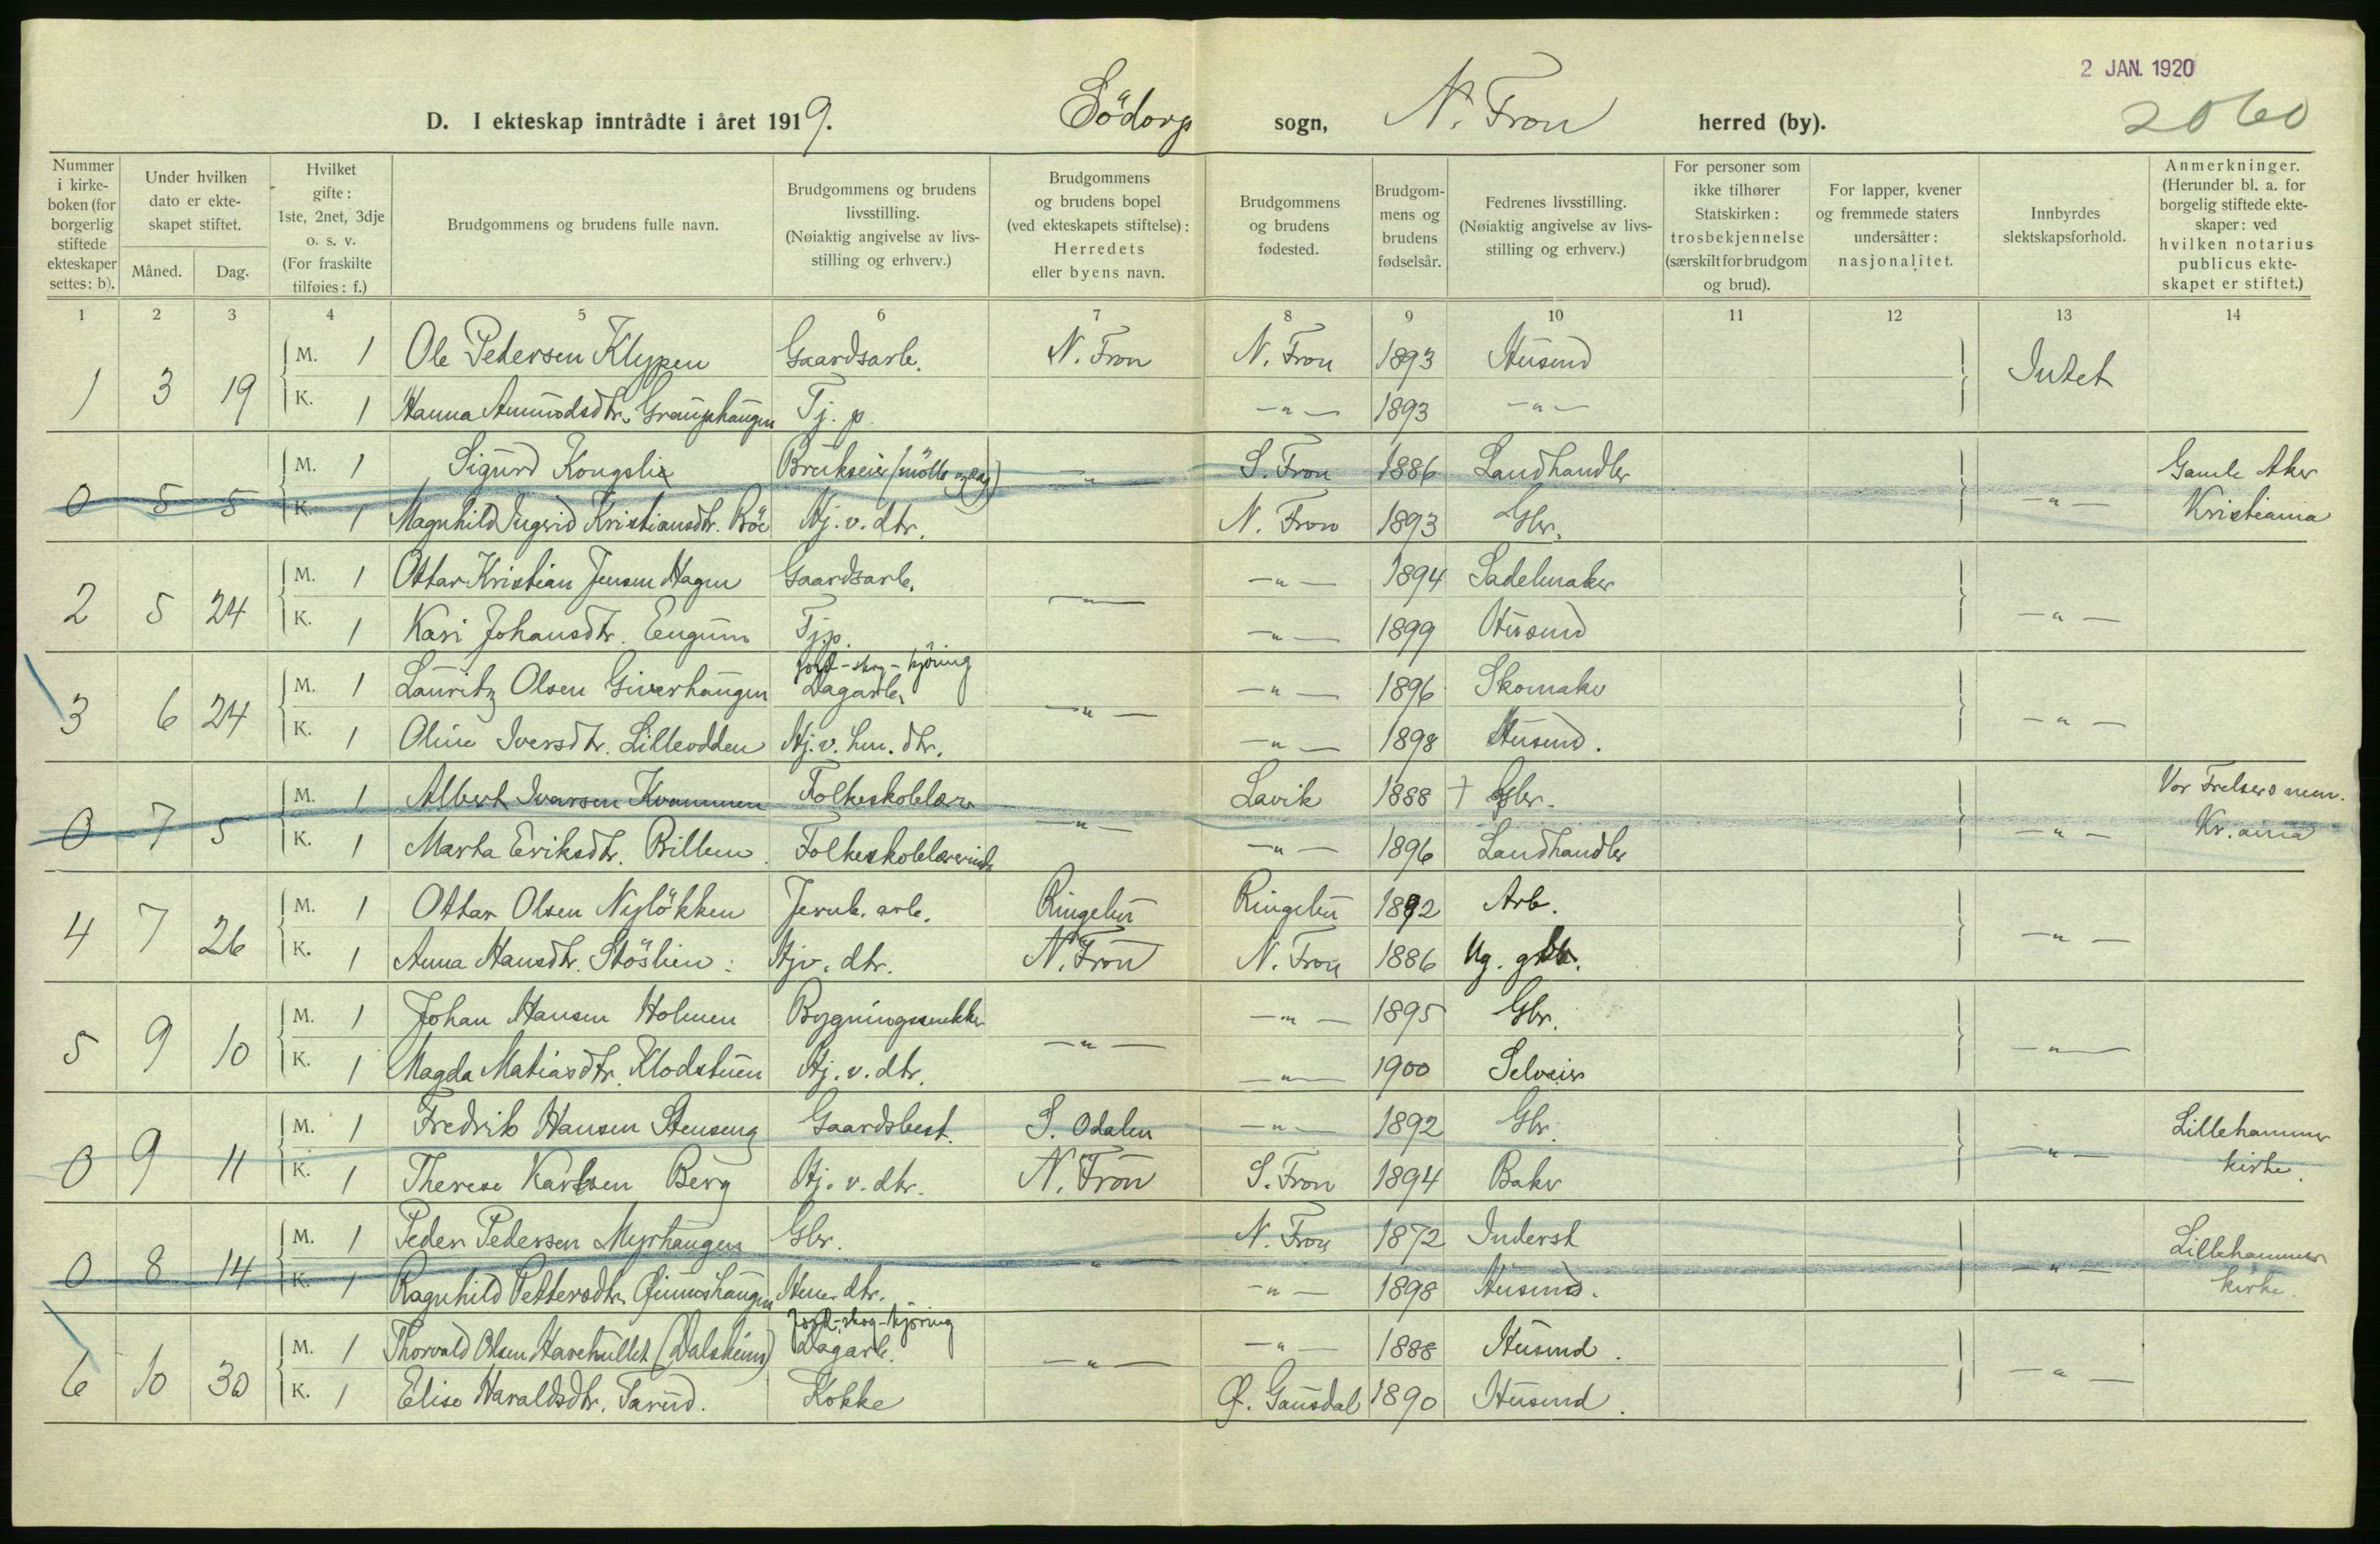 2 JAN. 1920
D. I ekteskap inntrådte i året 1919. Södorp sogn, N. Fron herred (by).
2060
Nummer i kirke-boken (for borgerlig stiftede ekteskaper settes: b).
Under hvilken dato er ekte-skapet stiftet.
Måned. Dag.
Hvilket gifte: 1ste, 2net, 3dje o. s. v. (For fraskilte tilføies: f.)
Brudgommens og brudens fulle navn.
Brudgommens og brudens livsstilling. (Nøiaktig angivelse av livs-stilling og erhverv.)
Brudgommens og brudens bopel (ved ekteskapets stiftelse): Herredets eller byens navn.
Brudgommens og brudens fødested.
Brudgom-mens og brudens fødselsår.
Fedrenes livsstilling. (Nøiaktig angivelse av livs-stilling og erhverv.)
For personer som ikke tilhører Statskirken: trosbekjennelse (særskilt for brudgom og brud).
For lapper, kvener og fremmede staters undersåtter: nasjonalitet.
Innbyrdes slektskapsforhold.
Anmerkninger. (Herunder bl. a. for borgelig stiftede ekte-skaper: ved hvilken notarius publicus ekte-skapet er stiftet.)
1 2 3 4 5 6 7 8 9 10 11 12 13 14
1 3 19 M. 1 Ole Pedersen Klypen Gaardsarb. N. Fron N. Fron 1893 Husmd Intet
K. 1 Hanna Amundsdtr. Grauphaugen Tj. p. -"- 1893 -"-
0 5 5 M. 1 Sigurd Kongsli Brukseier (mölle og sag) -"- S. Fron 1886 Landhandler -"- Gamle Aker
K. 1 Magnhild Ingrid Kristiansdtr. Böe Hj. v. dtr. N. Fron 1893 Gbr. Kristiania
2 5 24 M. 1 Ottar Kristian Jensen Hagen Gaardsarb. -"- -"- 1894 Sadelmaker -"-
K. 1 Kari Johansdtr. Engum Tj.p. -"- 1899 Husmd
Jord-skog-kjöring
3 6 24 M. 1 Lauritz Olsen Giverhaugen Dagarb. -"- -"- 1896 Skomaker -"-
K. 1 Oline Iversdtr. Lilleodden Hj. v. hm. dtr. -"- 1898 Husmd.
0 7 5 M. 1 Albert Ivarsen Kvammen Folkeskolelærer -"- Lavik 1888 + Gbr. -"- Vor Frelsers men.
K. 1 Marta Eriksdtr. Billum. Folkeskolelærerinde -"- 1896 Landhandler Kr.ania
4 7 26 M. 1 Ottar Olsen Nylökken Jernb. arb. Ringebu Ringebu 1892 Arb. -"-
K. 1 Anna Hansdtr. Stöslien: Hjv. dtr. N. Fron N. Fron 1886 Ug. gbr.
5 9 10 M. 1 Johan Hansen Holmen Bygningssnekker -"- -"- 1895 Gbr. -"-
K. 1 Magda Matiasdtr. Klodstuen Hj. v. dtr. -"- 1900 Selveier
0 9 11 M. 1 Fredrik Hansen Stenseng Gaardsbest. S. Odalen -"- 1892 Gbr. -"- Lillehammer
K. 1 Therese Karlsen Berg Hj. v. dtr. N. Fron S. Fron 1894 Baker kirke.
0 8 14 M. 1 Peder Pedersen Myrhaugen Gbr. -"- N. Fron 1872 Inderst -"- Lillehammer
K. 1 Ragnhild Pettersdtr. Hm. dtr. -"- 1898 Husmd. kirke.
Jord-skog-kjöring
6 10 30 M. 1 Thorvald Olsen Havehullet (Dalsheim) Dagarb. -"- -"- 1888 Husmd. -"-
K. 1 Elise Haraldsdtr. Tarud. Kokke Ø. Gausdal 1890 Husmd.